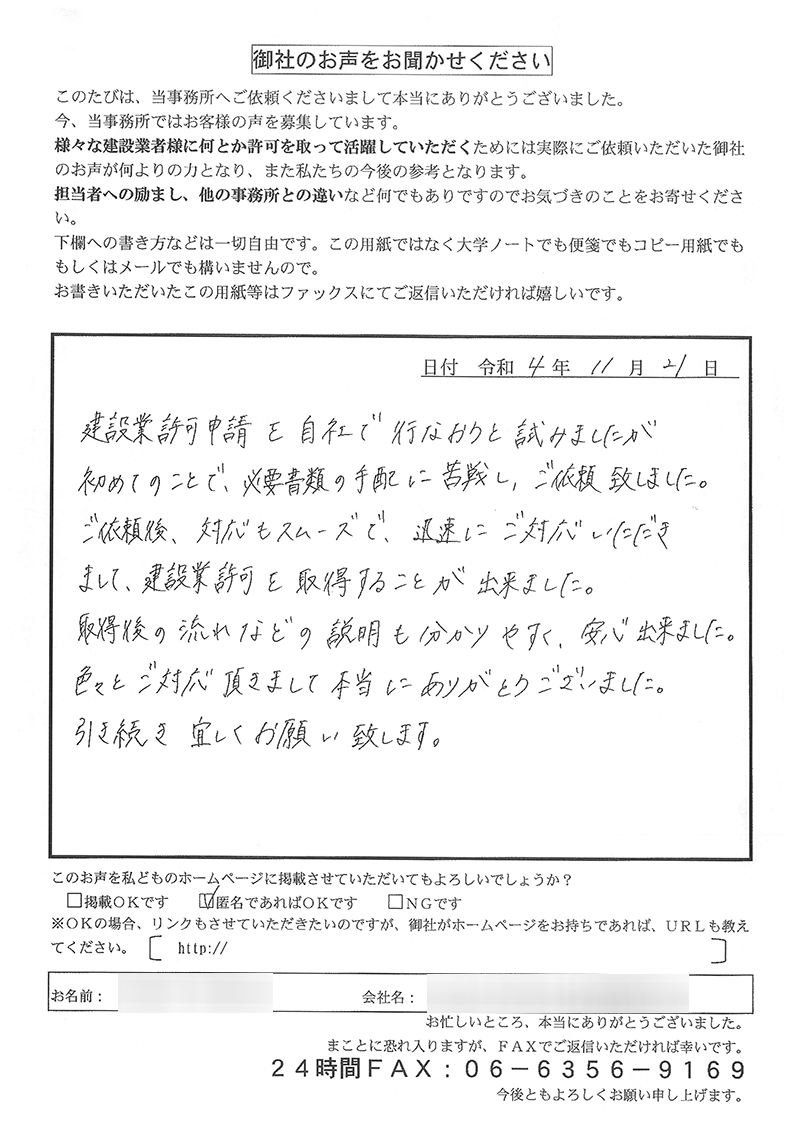 御社のお声をお聞かせください
このたびは、当事務所へご依頼くださいまして本当にありがとうございました。
今、当事務所ではお客様の声を募集しています。
様々な建設業者様に何とか許可を取って活躍していただくためには実際にご依頼いただいた御社
のお声が何よりの力となり、また私たちの今後の参考となります。
担当者への励まし、他の事務所との違いなど何でもありですのでお気づきのことをお寄せくださ
い。
下欄への書き方などは一切自由です。この用紙ではなく大学ノートでも便箋でもコピー用紙でも
もしくはメールでも構いませんので。
お書きいただいたこの用紙等はファックスにてご返信いただければ嬉しいです。
日付 令和 4 年 11 月 21 日
建設業許可申請を自社で行なおうと試みましたが
初めてのことで、必要書類の手配に苦戦し、ご依頼致しました。
ご依頼後、対応もスムーズで、迅速にご対応いただき
まして、建設業許可を取得することが出来ました。
取得後の流れなどの説明も分かりやすく、安心出来ました。
色々とご対応頂きまして本当にありがとうございました。
引き続き宜しくお願い致します。
このお声を私どものホームページに掲載させていただいてもよろしいでしょうか？
□掲載ＯＫです ☑匿名であればＯＫです □ＮＧです
※ＯＫの場合、リンクもさせていただきたいのですが、御社がホームページをお持ちであれば、ＵＲＬも教え
てください。〔 http:// 〕
お名前： 会社名：
お忙しいところ、本当にありがとうございました。
まことに恐れ入りますが、ＦＡＸでご返信いただければ幸いです。
２４時間ＦＡＸ：０６－６３５６－９１６９
今後ともよろしくお願い申し上げます。